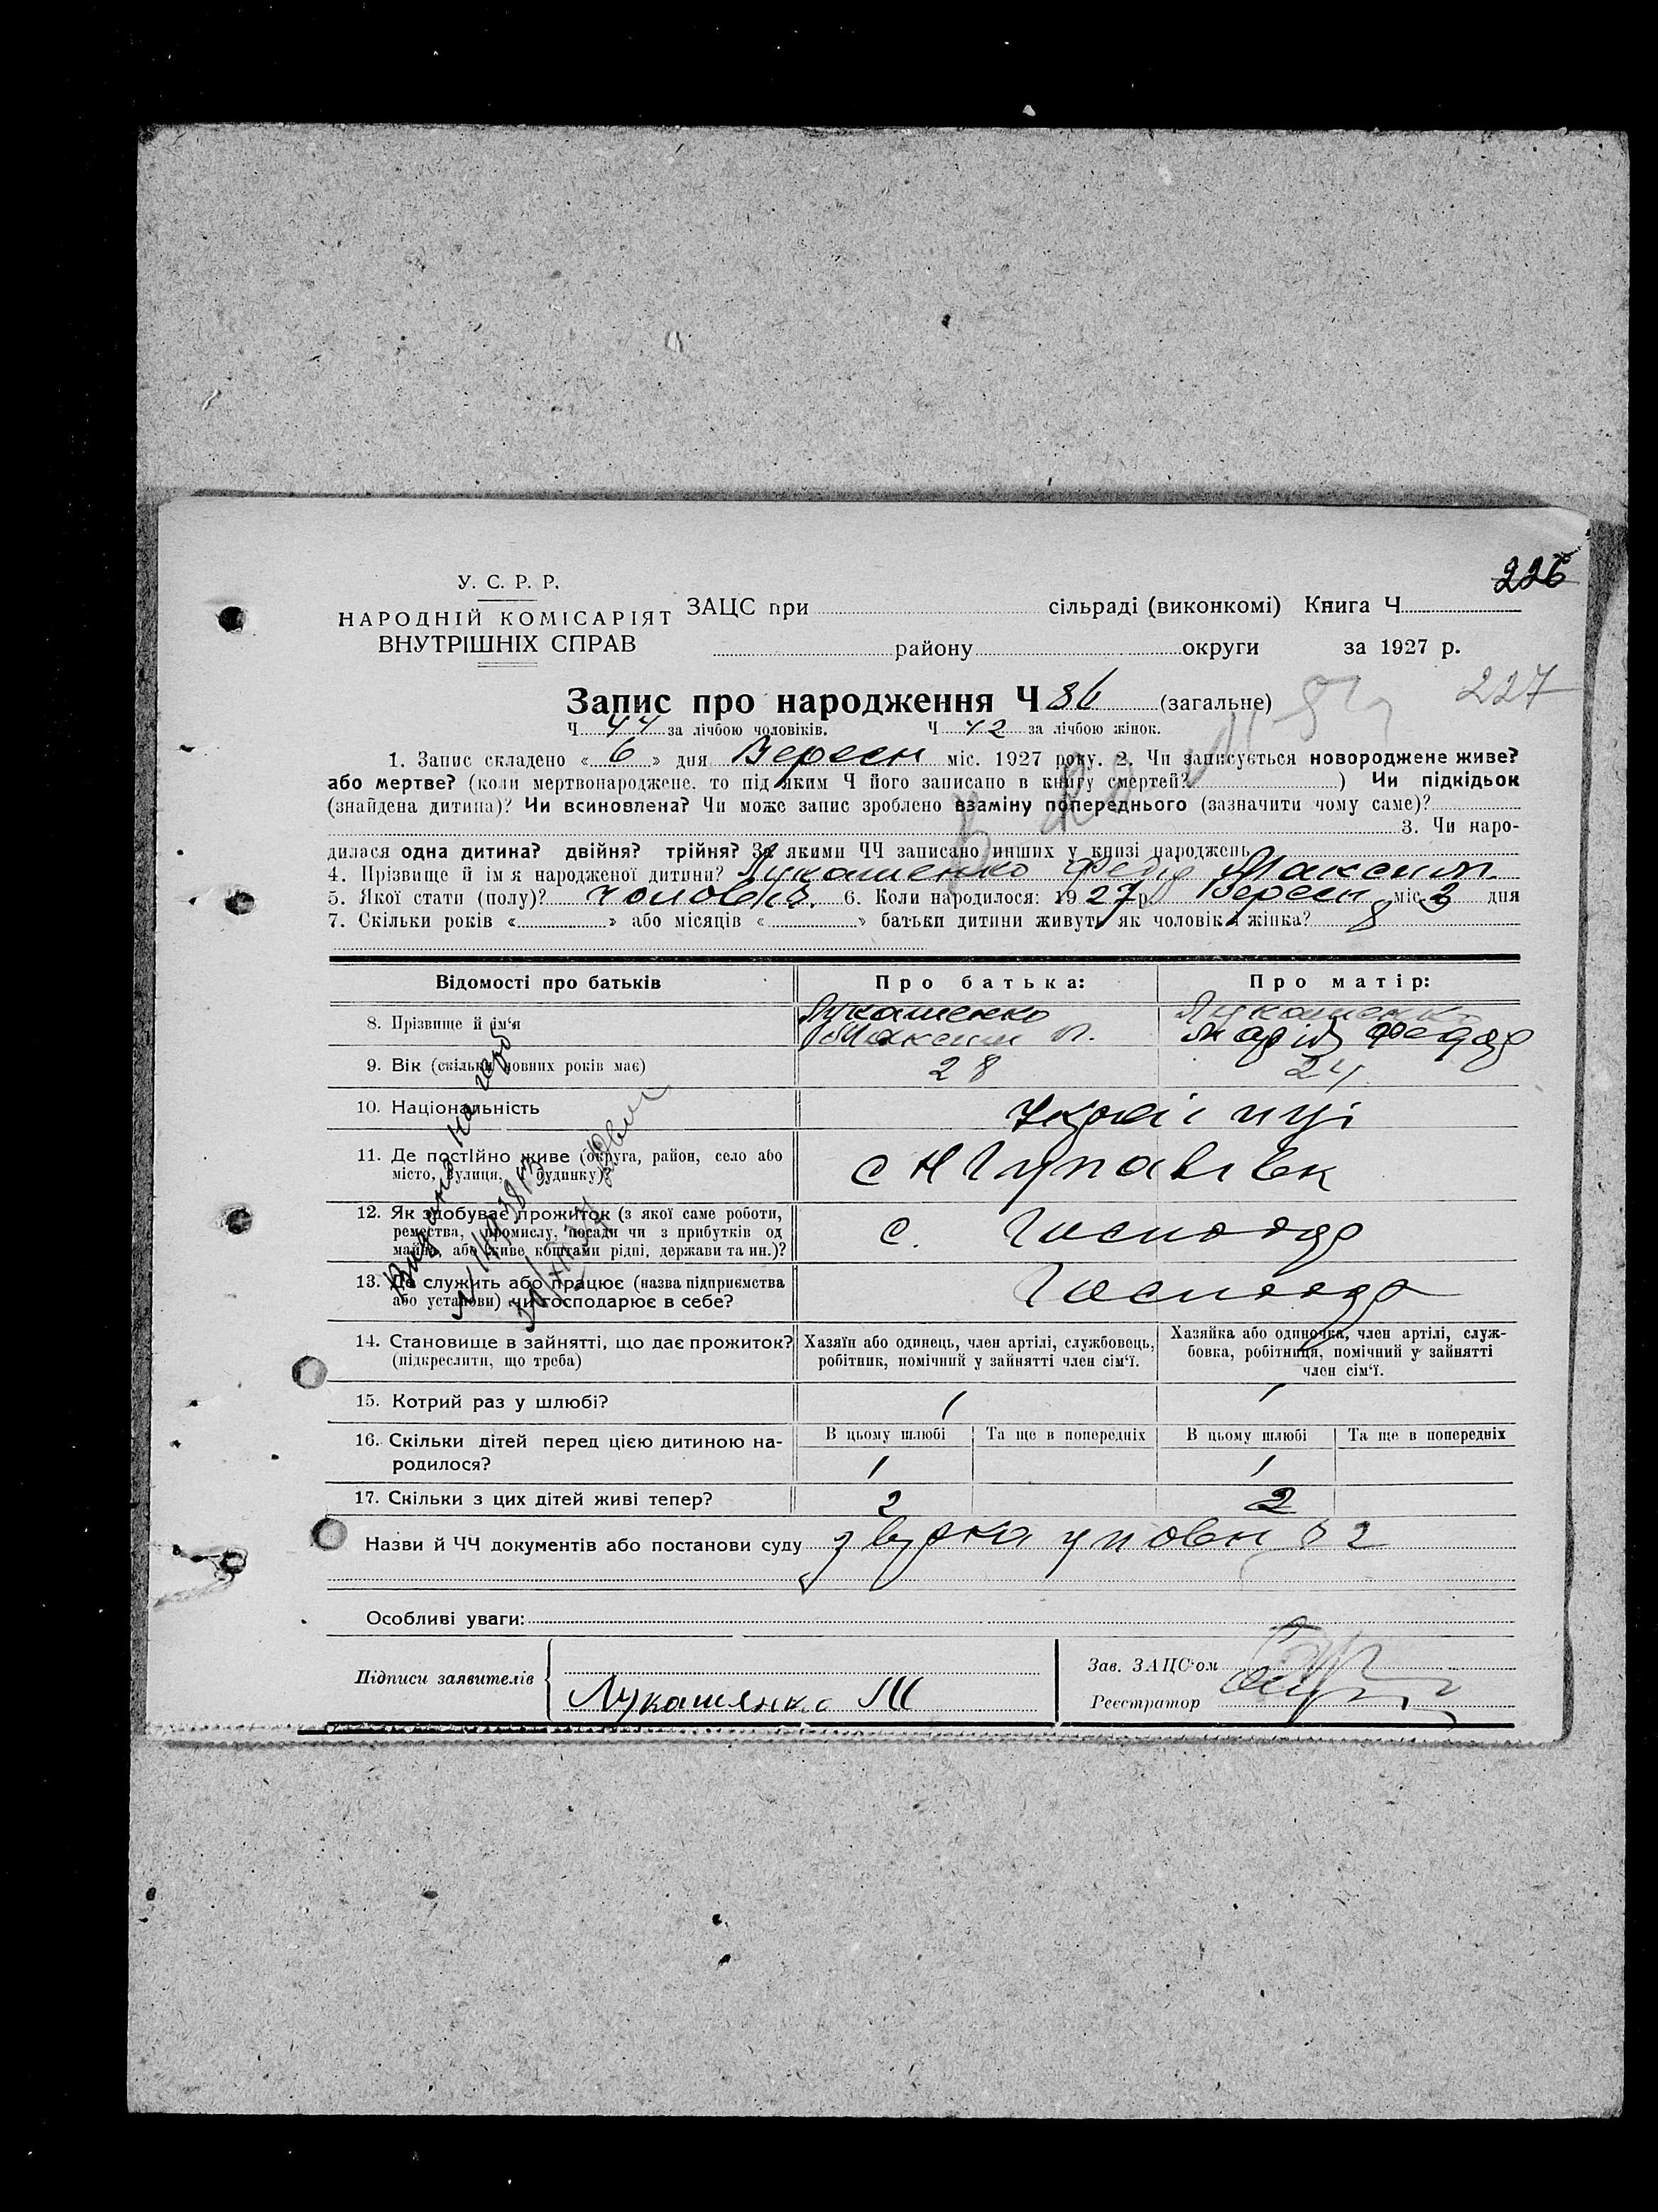 226
У. С. Р. Р.
НАРОДНІЙ КОМІСАРІЯТ
ВНУТРІШНІХ СПРАВ
ЗАЦС при сільраді (виконкомі) Книга Ч.
району округи за 1927 р.
227
Запис про народження Ч 86 (загальне)
Ч 44 за лічбою чоловіків. Ч 42 за лічбою жінок.
1. Запис складено « 6 » дня Вересн міс. 1927 року. 2. Чи записується новороджене живе?
або мертве? (коли мертвонароджене, то під яким Ч його записано в книгу смертей? ) Чи підкідьок
(знайдена дитина)? Чи всиновлена? Чи може запис зроблено взаміну попереднього (зазначити чому саме)?
3. Чи наро-
дилася одна дитина? двійня? трійня? За якими ЧЧ записано инших у книзі народжень
4. Прізвище й ім'я народженої дитини? Лукашенко Федір Максим.
5. Якої стати (полу)? чоловіч. 6. Коли народилося: 1927 р. Вересн міс. 3 дня
7. Скільки років « » або місяців « » батьки дитини живуть як чоловік і жінка? 8
Відомості про батьків Про батька: Про матір:
8. Прізвище й ім'я Лукашенко Максим П. Лукашенко Марія Федор
9. Вік (скільки повних років має) 28 24
10. Національність Україінці
11. Де постійно живе (округа, район, село або
місто, вулиця, Ч будинку)? с
12. Як здобуває прожиток (з якої саме роботи,
ремества, промислу, посади чи з прибутків од
майна, або живе коштами рідні, держави та ин.)? с. Господар
13. Де служить або працює (назва підприємства
або установи) чи господарює в себе? Господар
14. Становище в зайнятті, що дає прожиток?
(підкреслити, що треба)
Хазяїн або одинець, член артілі, службовець,
робітник, помічний у зайнятті член сім'ї.
Хазяйка або одиночка, член артілі, служ-
бовка, робітниця, помічний у зайнятті
член сім'ї.
15. Котрий раз у шлюбі? 1 1
16. Скільки дітей перед цією дитиною на-
родилося?
В цьому шлюбі Та ще в попередніх В цьому шлюбі Та ще в попередніх
1 1
17. Скільки з цих дітей живі тепер? 2 2
Назви й ЧЧ документів або постанови суду
Особливі уваги:
Підписи заявителів
Лукашенко М
Зав. ЗАЦС'ом
Реєстратор